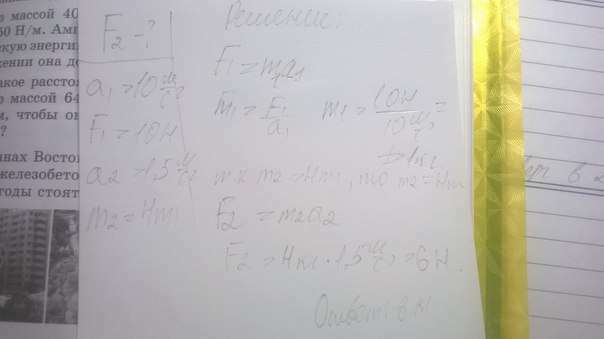 р массой 40
50 Н/м. Амп
скую энерги
жении она до
акое расстоя
р массой 64
м, чтобы он
?
нах Восто
железобето
годы стоят
F2 - ?
a1 = 10 м/с²
F1 = 10 Н
a2 = 1,5 м/с²
m2 = 4m1
Решение:
F1 = m1a1
m1 = F1/a1 m1 = 10Н / 10 м/с² =
= 1кг
т к m2 = 4m1, то m2 = 4кг
F2 = m2a2
F2 = 4кг · 1,5 м/с² = 6Н.
Ответ: 6 Н